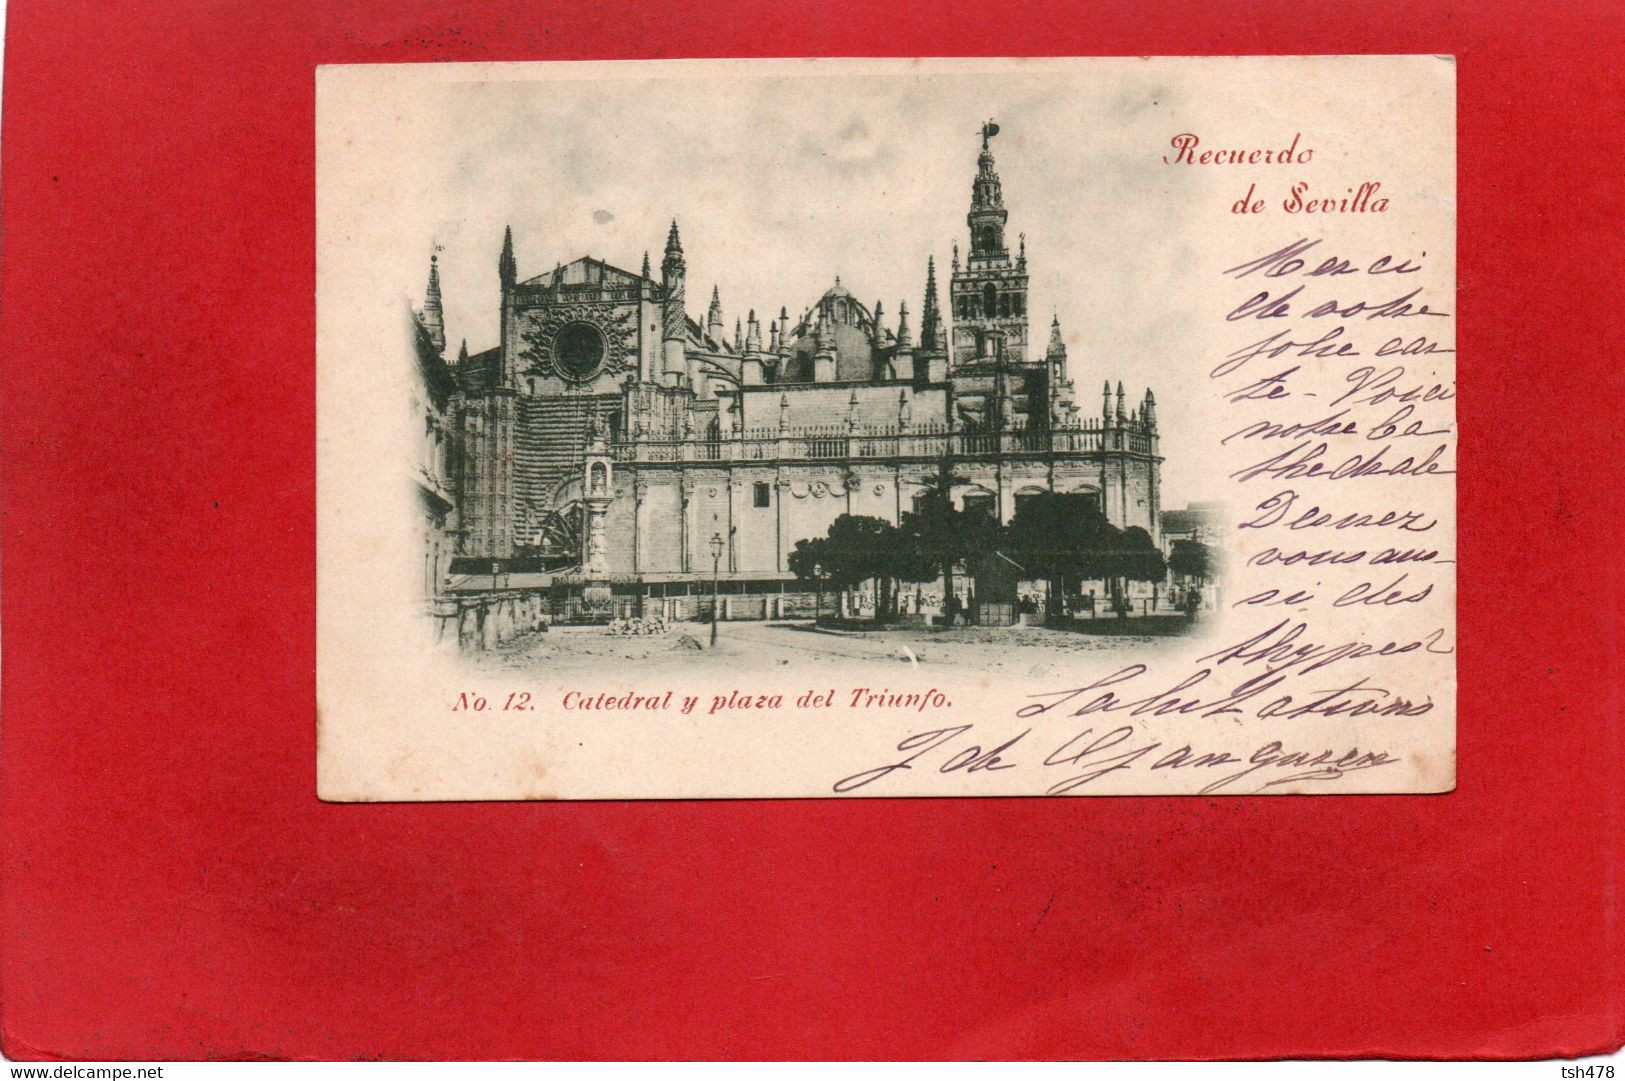 Recuerdo
de Sevilla
Merci
de votre
jolie car
te - Voici
notre Ca
thedrale
Desirez
vous aus-
si des
thypes?
Salutations
J de
No. 12. Catedral y plaza del Triunfo.
delcampe.net
tsh478